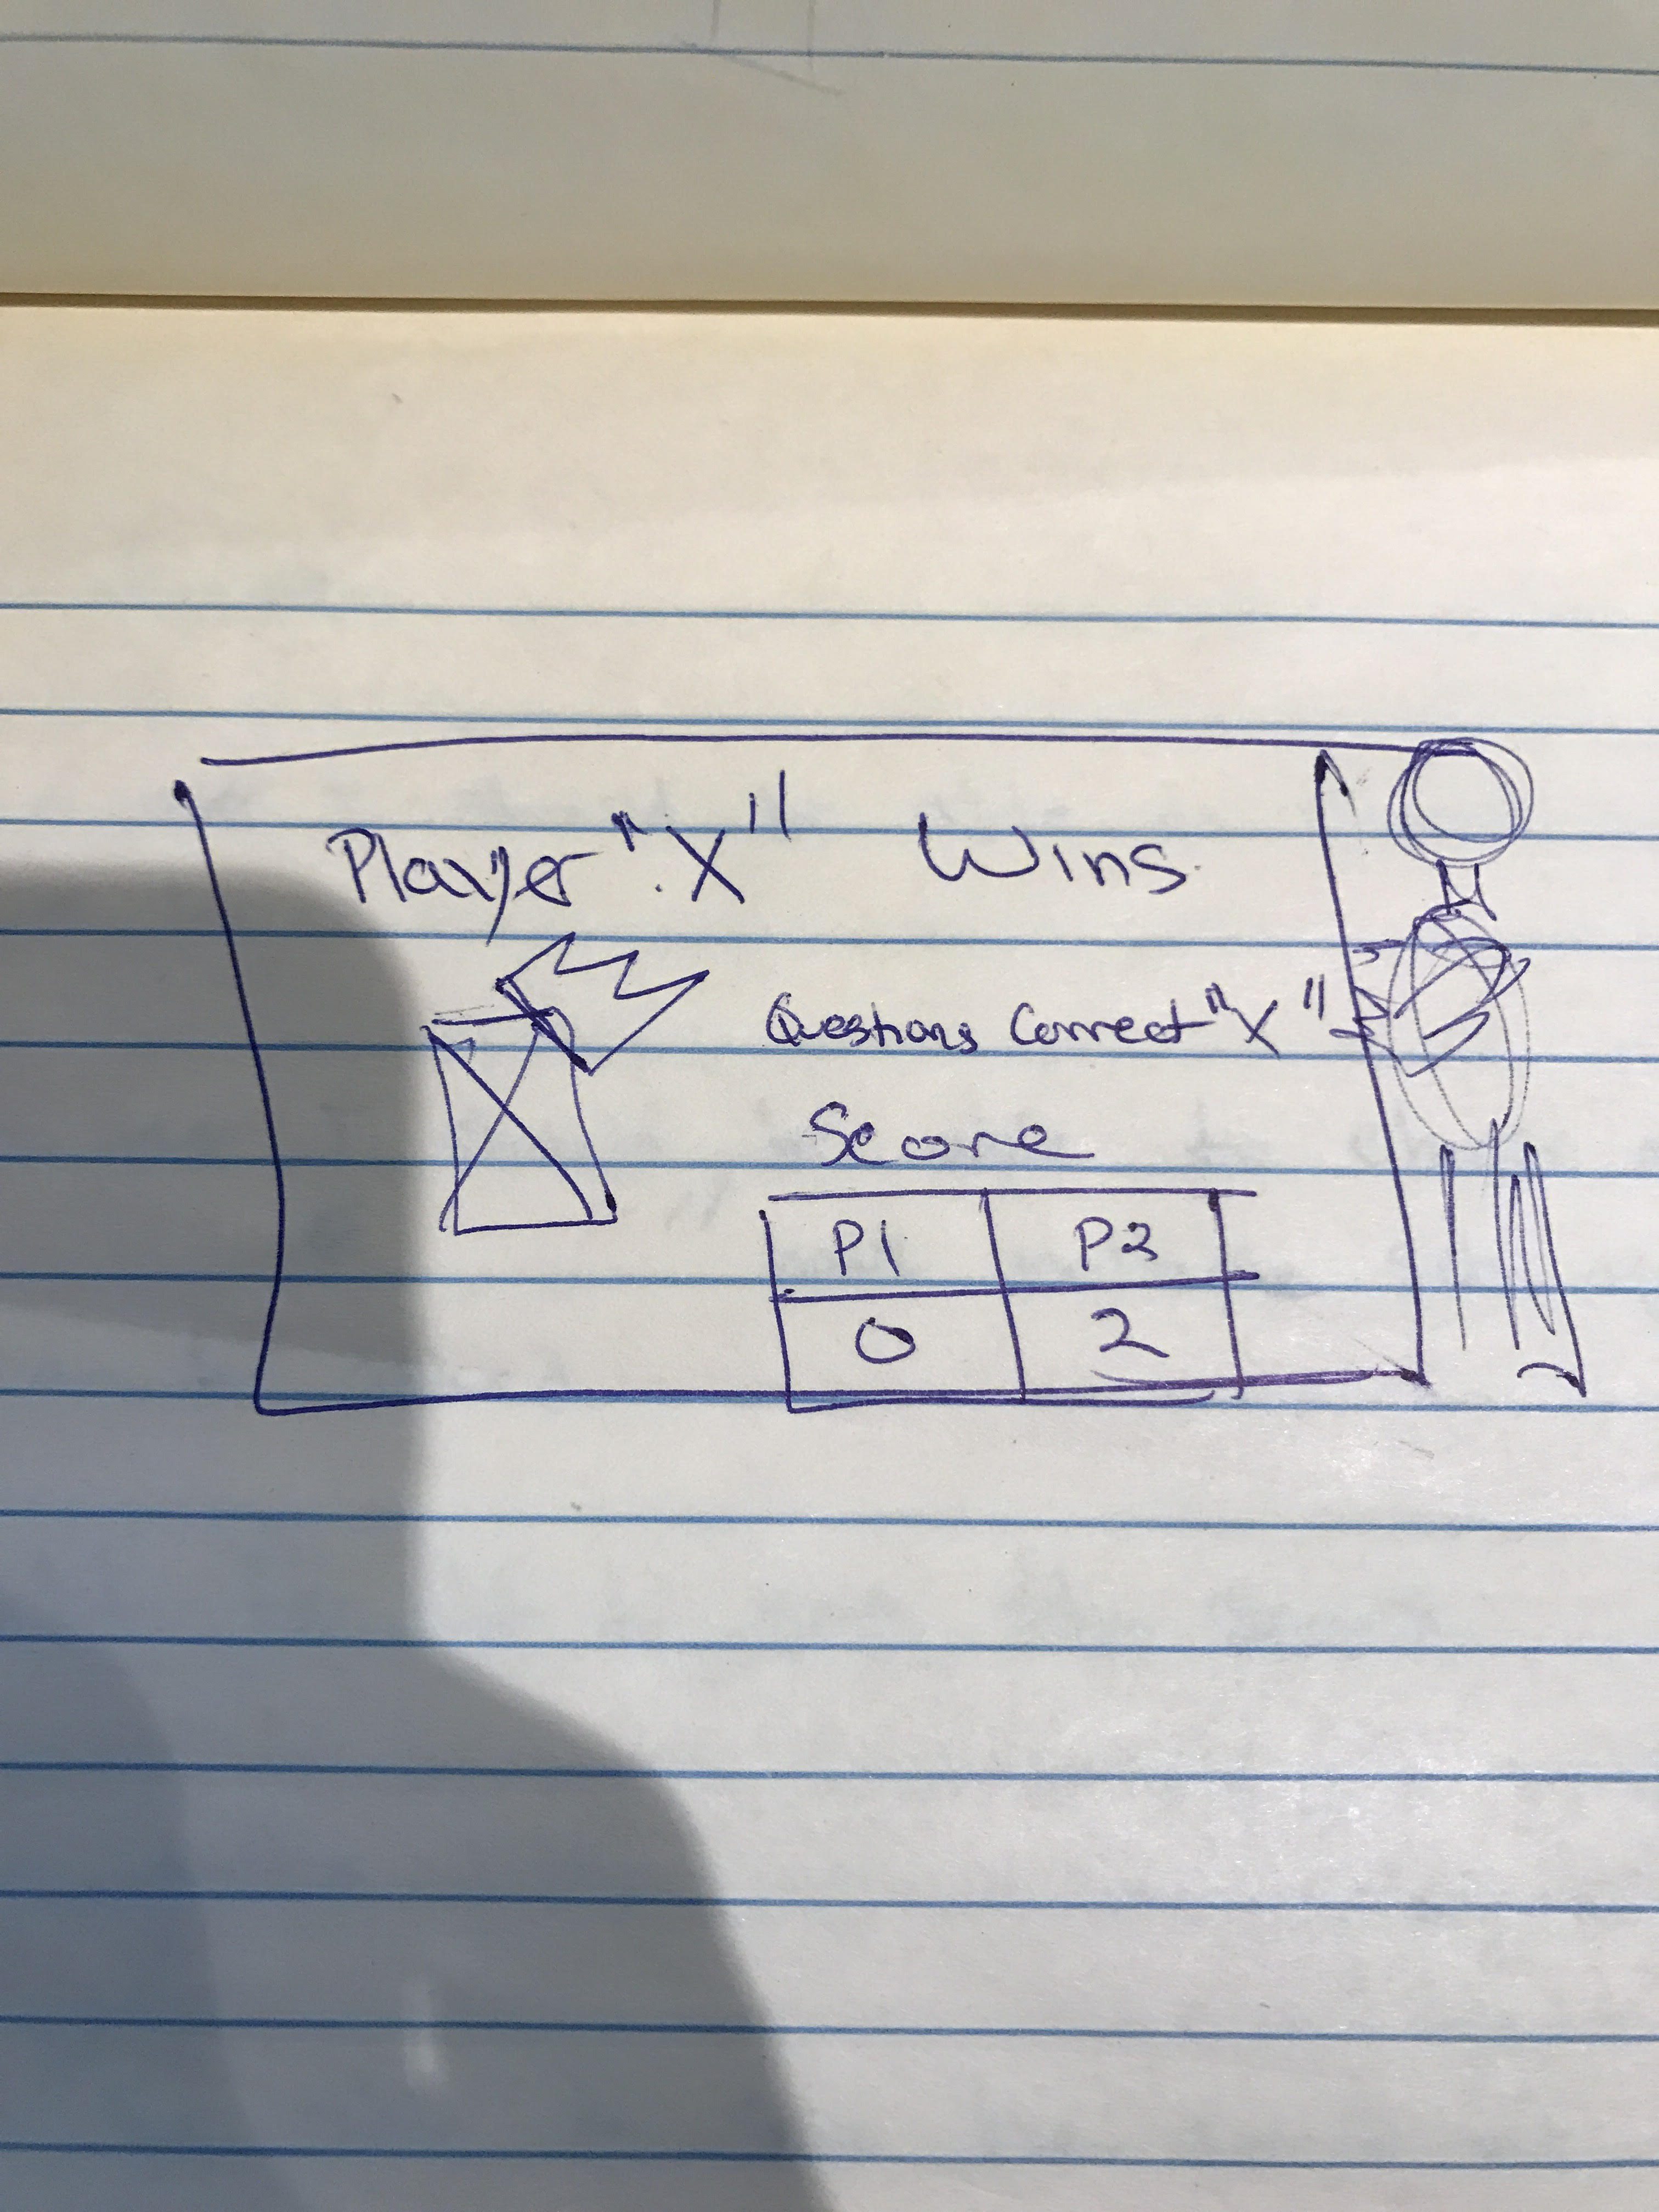 Player "X" Wins
Questions Correct "X"
Score
P1 P2
0 2